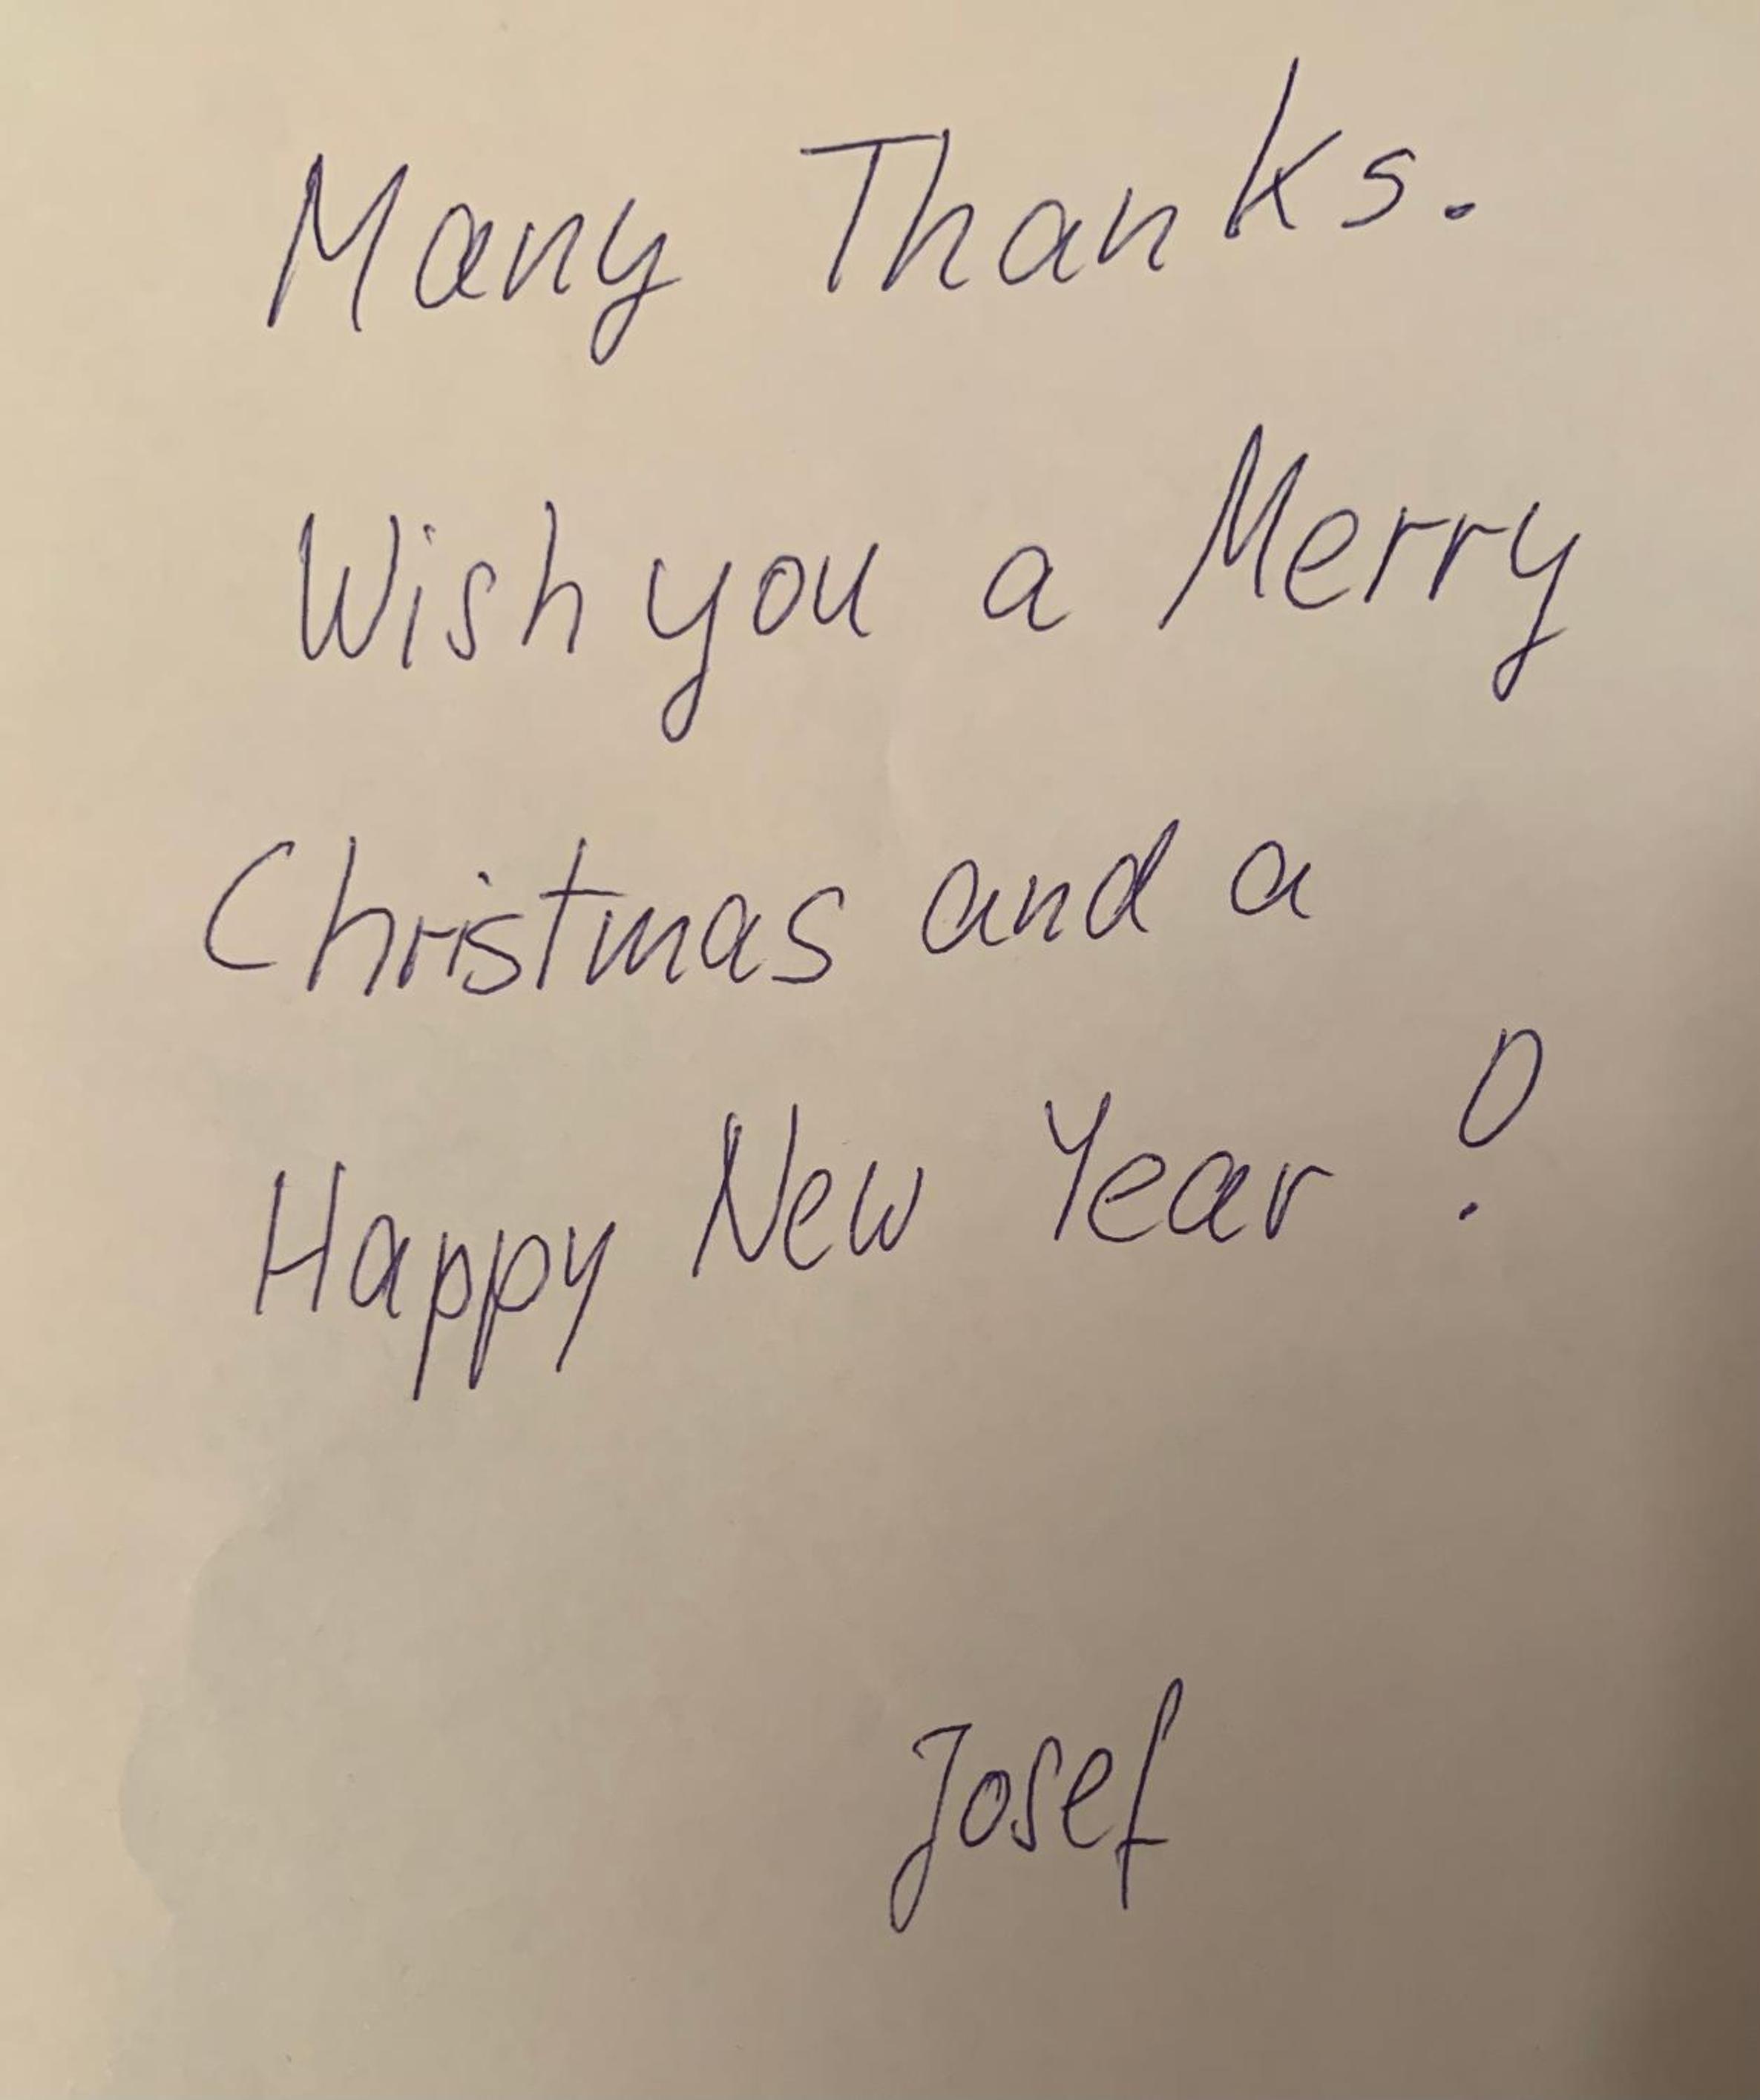 Many Thanks.
Wish you a Merry
Christmas and a
Happy New Year!
Josef